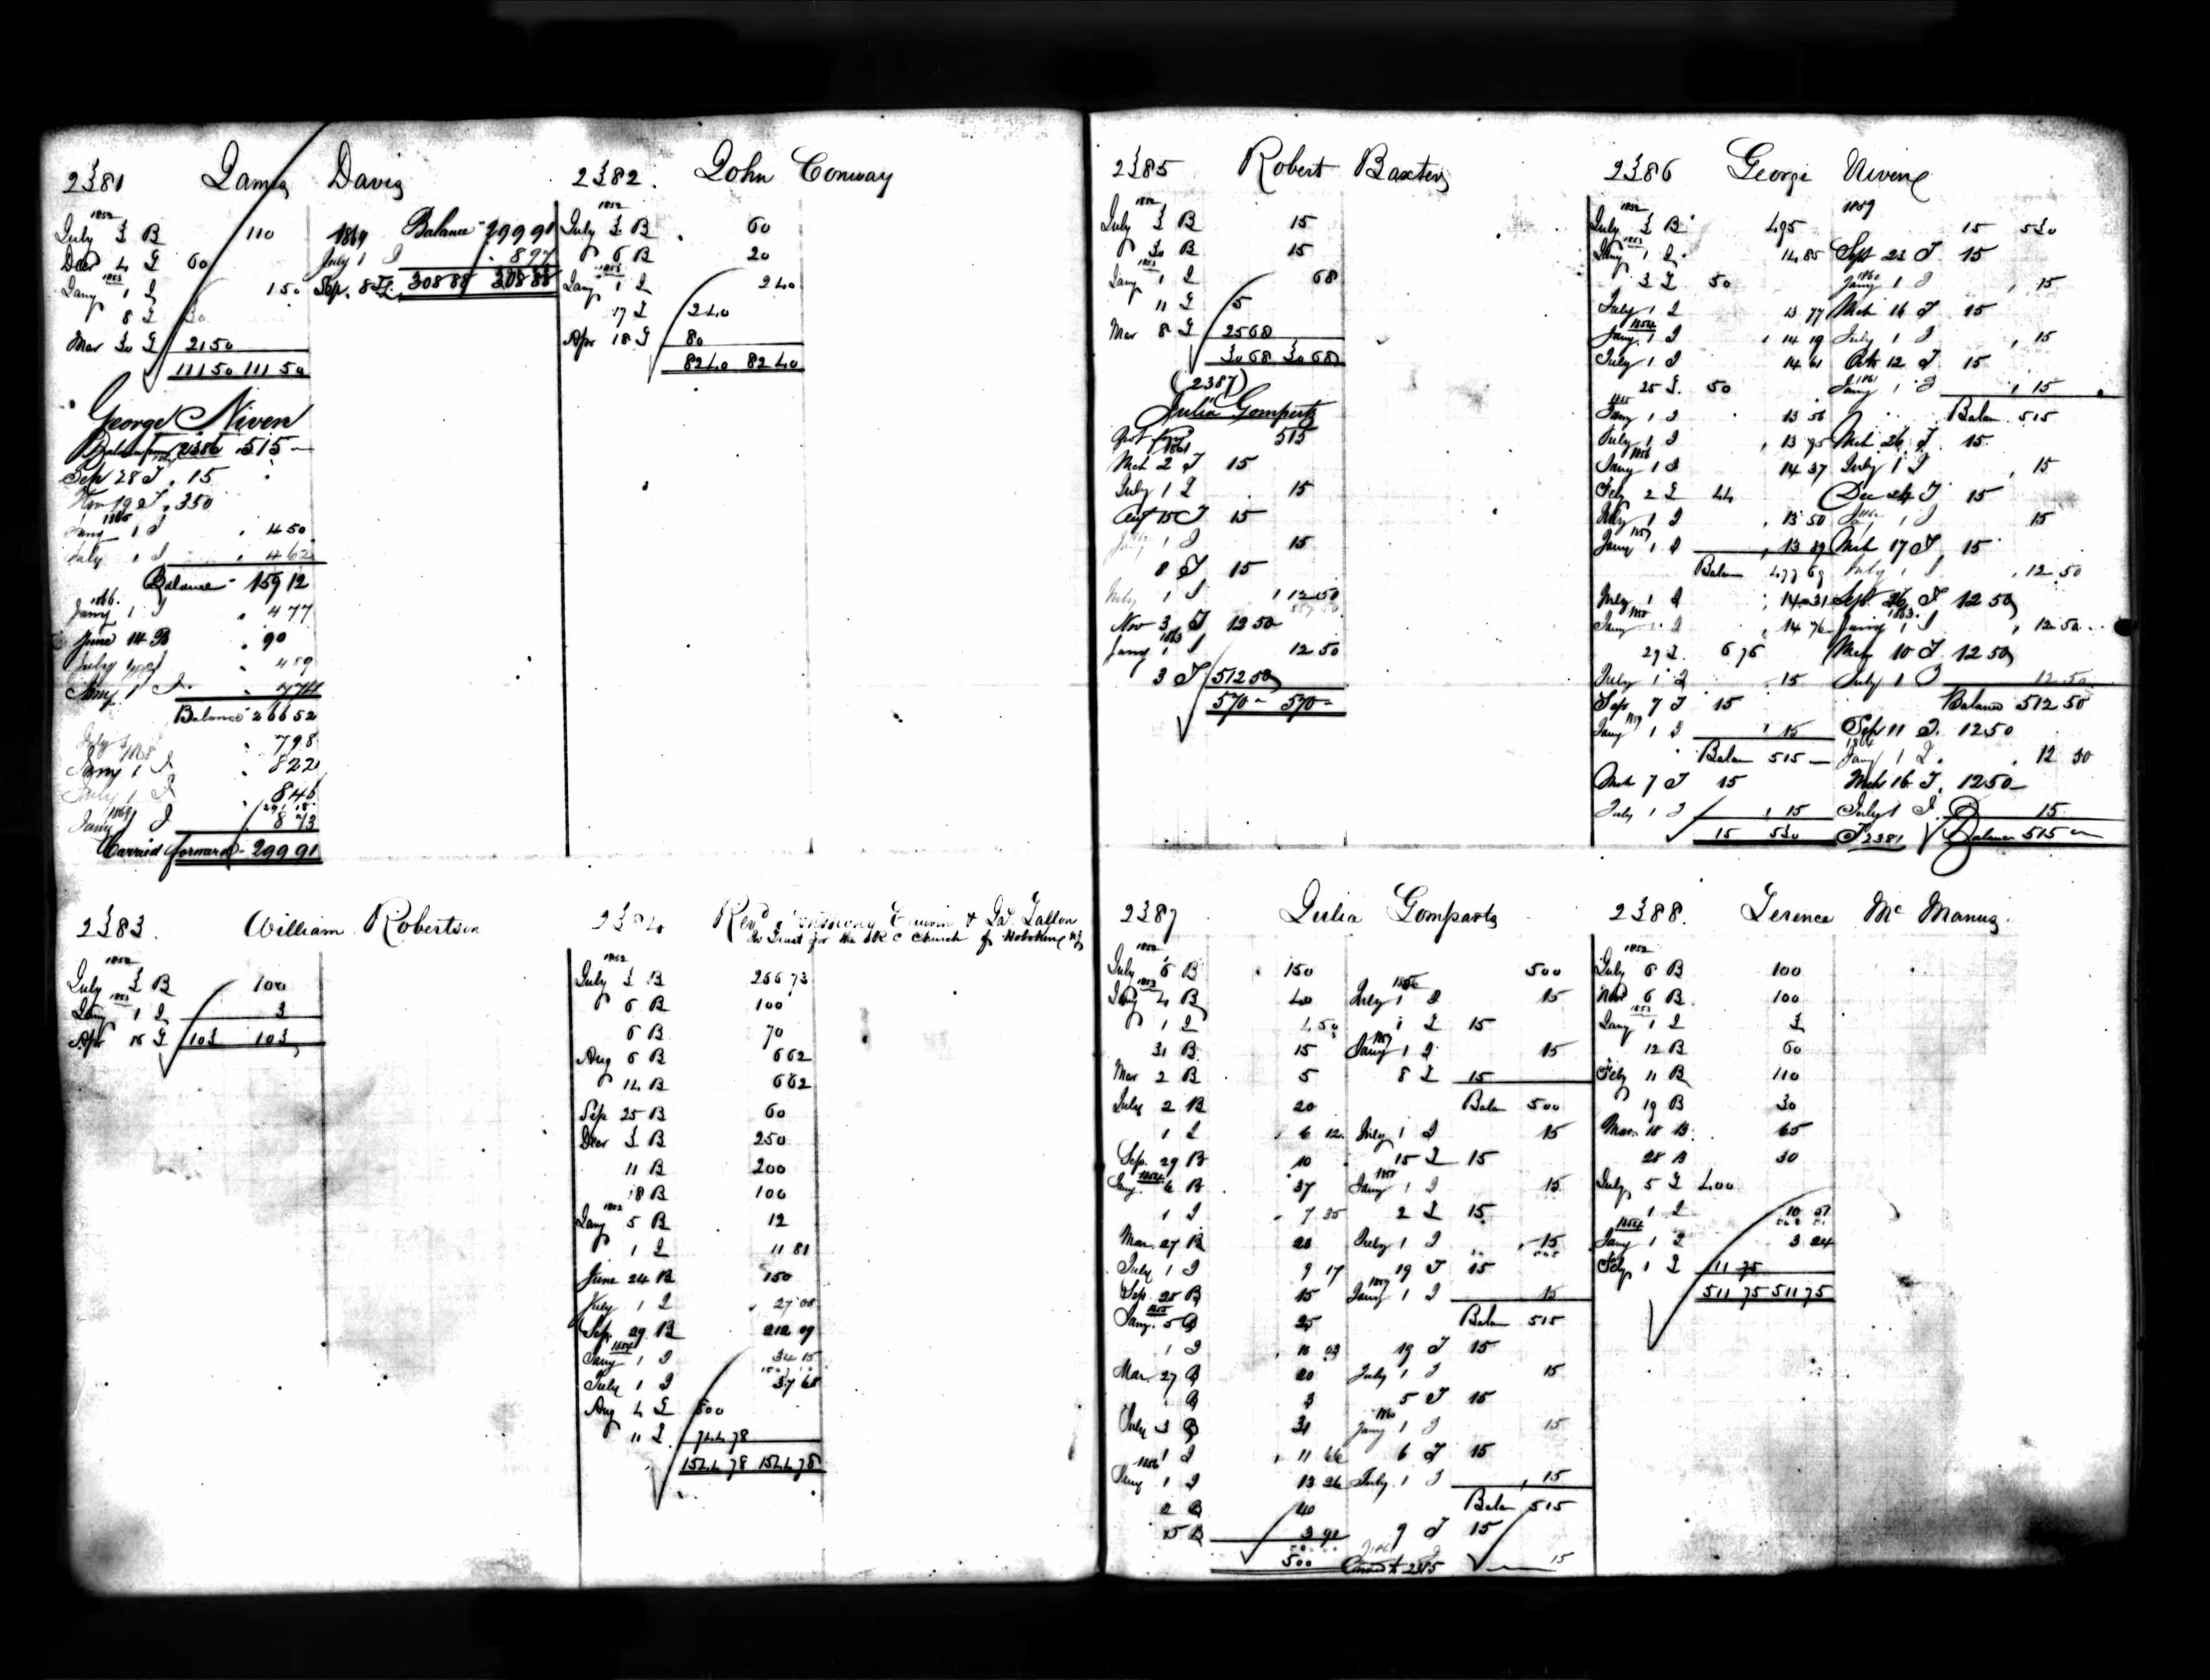 2381 James Davis
1852
July 3 B 110
Decr 4 I 60
1853
Jany 1 I 1 50
8 I 30
Mar 30 I 21 50
111 50 111 50
1869 Balance 299 91
July 1 I 8 97
Sep. 8 I 308 88 308 88
George Niven
Balance from 2386 515 —
Sep 28 I 15
Nov 19 I 350
1865
Jany 1 I 4 50
July 1 I 4 62
Balance 159 12
1866
Jany 1 I 4 77
June 14 B 90
July 1 I 4 89
Jany 1 I 7 74
Balance 266 52
July 1 I 7 98
1868
Jany 1 I 8 22
July 1 I 8 46
1869
Jany 1 I 8 73
Carried forward 299 91
2382. John Conway
1852
July 3 B 60
6 B 20
1853
Jany 1 I 2 40
17 I 2 40
Apr 18 I 80
82 40 82 40
2383. William Robertson
1852
July 3 B 100
1853
Jany 1 I 3
Apr 16 I 103 103
2384 Revd Anthony Cauvin &
In Trust for the R C Church of Hoboken NJ
1852
July 3 B 266 73
6 B 100
6 B 70
Aug 6 B 6 62
14 B 6 62
Sep 25 B 60
Decr 3 B 250
11 B 200
18 B 100
Jany 5 B 12
1 I 11 81
June 24 B 150
July 1 I 27 08
Sep. 29 B 212 09
1854
Jany 1 I 34 15
July 1 I 37 68
Aug 4 I 800
11 I 744 78
1544 78 1544 78
2385 Robert Baxter
1852
July 3 B 15
30 B 15
1853
Jany 1 I 68
11 I 5
Mar 8 I 25 68
30 68 30 68
(2387)
Julia Gompertz
515
1861
Mch 2 I 15
July 1 I 15
Aug 15 I 15
Jany 1 I 15
8 I 15
July 1 I 12 50
Nov 3 I 12 50
1863
Jany 1 I 12 50
3 I 512 50
570 — 570 —
2386 George Nivene
1852
July 3 B 495
1853
Jany 1 I 14 85
3 I 50
July 1 I 13 77
1854
Jany 1 I 14 19
July 1 I 14 61
25 I 50
1855
Jany 1 I 13 56
July 1 I 13 95
1856
Jany 1 I 14 37
Feby 2 I 44
July 1 I 13 50
1857
Jany 1 I 13 89
Balan 477 69
July 1 I 14 31
1858
Jany 1 I 14 76
29 I 6 76
July 1 I 15
Sep 7 I 15
1859
Jany 1 I 15
Balan 515 —
Mch 7 I 15
July 1 I 15
15 530
1859
15 530
Sept 23 I 15
1860
Jany 1 I 15
Mch 16 I 15
July 1 I 15
Oct 12 I 15
1861
Jany 1 I 15
Balan 515
Mch 26 I 15
July 1 I 15
Dec 24 I 15
Jany 1 I 15
Mch 17 I 15
July 1 I 12 50
Sept 26 I 12 50
1863
Jany 1 I 12 50
Mch 10 I 12 50
July 1 I 12 50
Balance 512 50
Sep 11 I 12 50
1864
Jany 1 I 12 50
Mch 16 I 12 50
July 1 I 15
I 2381 Balance 515
2387 Julia Gompartz
1852
July 6 B 150
1853
Jany 4 B 400
1 I 4 50
31 B 15
Mar 2 B 5
July 2 B 20
1 I 6 12
Sep. 29 B 10
1854
Jany 6 B 37
1 I 7 35
Mar. 27 B 28
July 1 I 9 17
Sep. 28 B 15
1855
Jany. 5 B 25
1 I 10 03
Mar. 27 B 20
B 3
July 3 B 31
1 I 11 66
1856
Jany 1 I 13 26
2 B 40
25 B 3 91
500
500
1856
July 1 I 15
1 I 15
1857
Jany 1 I 15
8 I 15
Balan 500
July 1 I 15
15 I 15
1858
Jany 1 I 15
2 I 15
July 1 I 15
19 I 15
1859
Jany 1 I 15
Balan 515
19 I 15
July 1 I 15
5 I 15
1860
Jany 1 I 15
6 I 15
July 1 I 15
Balan 515
9 I 15
15
Carried to 2385
2388. Terence Mc Manus.
1852
July 6 B 100
Novr 6 B 100
1853
Jany 1 I 3
12 B 60
Feby 11 B 110
19 B 30
Mar. 18 B 65
28 B 30
July 5 I 400
1 I 10 51
1854
Jany 1 I 3 24
Feby 1 I 11 75
511 75 511 75